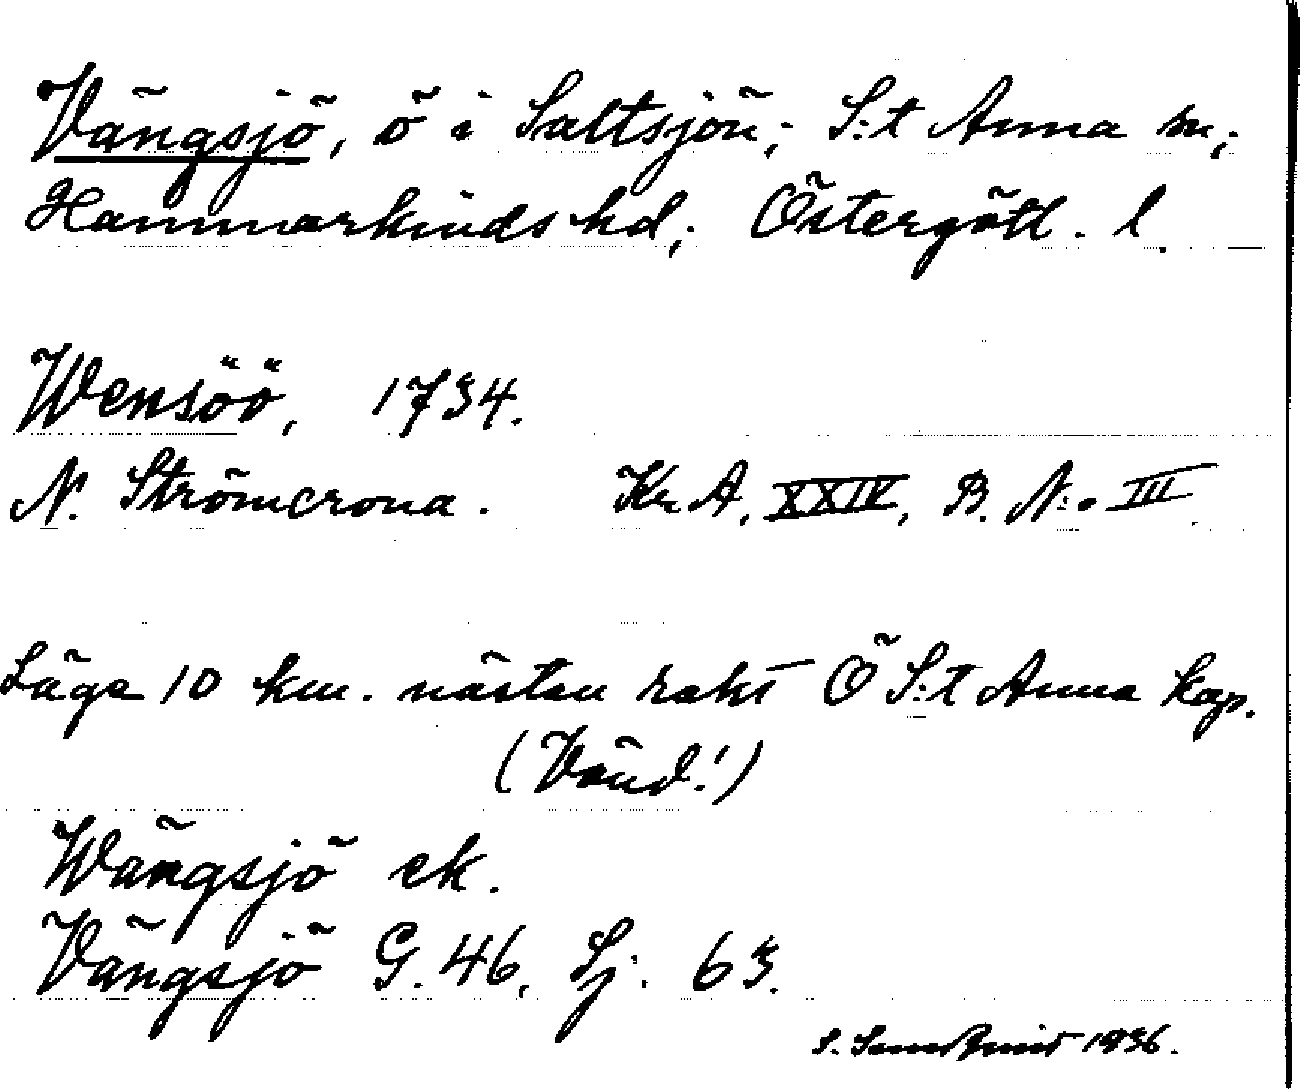 Vängsjö, ö i Saltsjön; S:t Anna sn;
Hammarkinds hd; Östergötl. l.
Wensöö, 1734.
N. Strömcrona. Kr. A. XXIV, B. N:o III.
Läge 10 km. nästan rakt Ö S:t Anna kap.
(Vänd!)
Wängsjö ek.
Vängsjö G. 46, Sj. 63.
S. 1936.